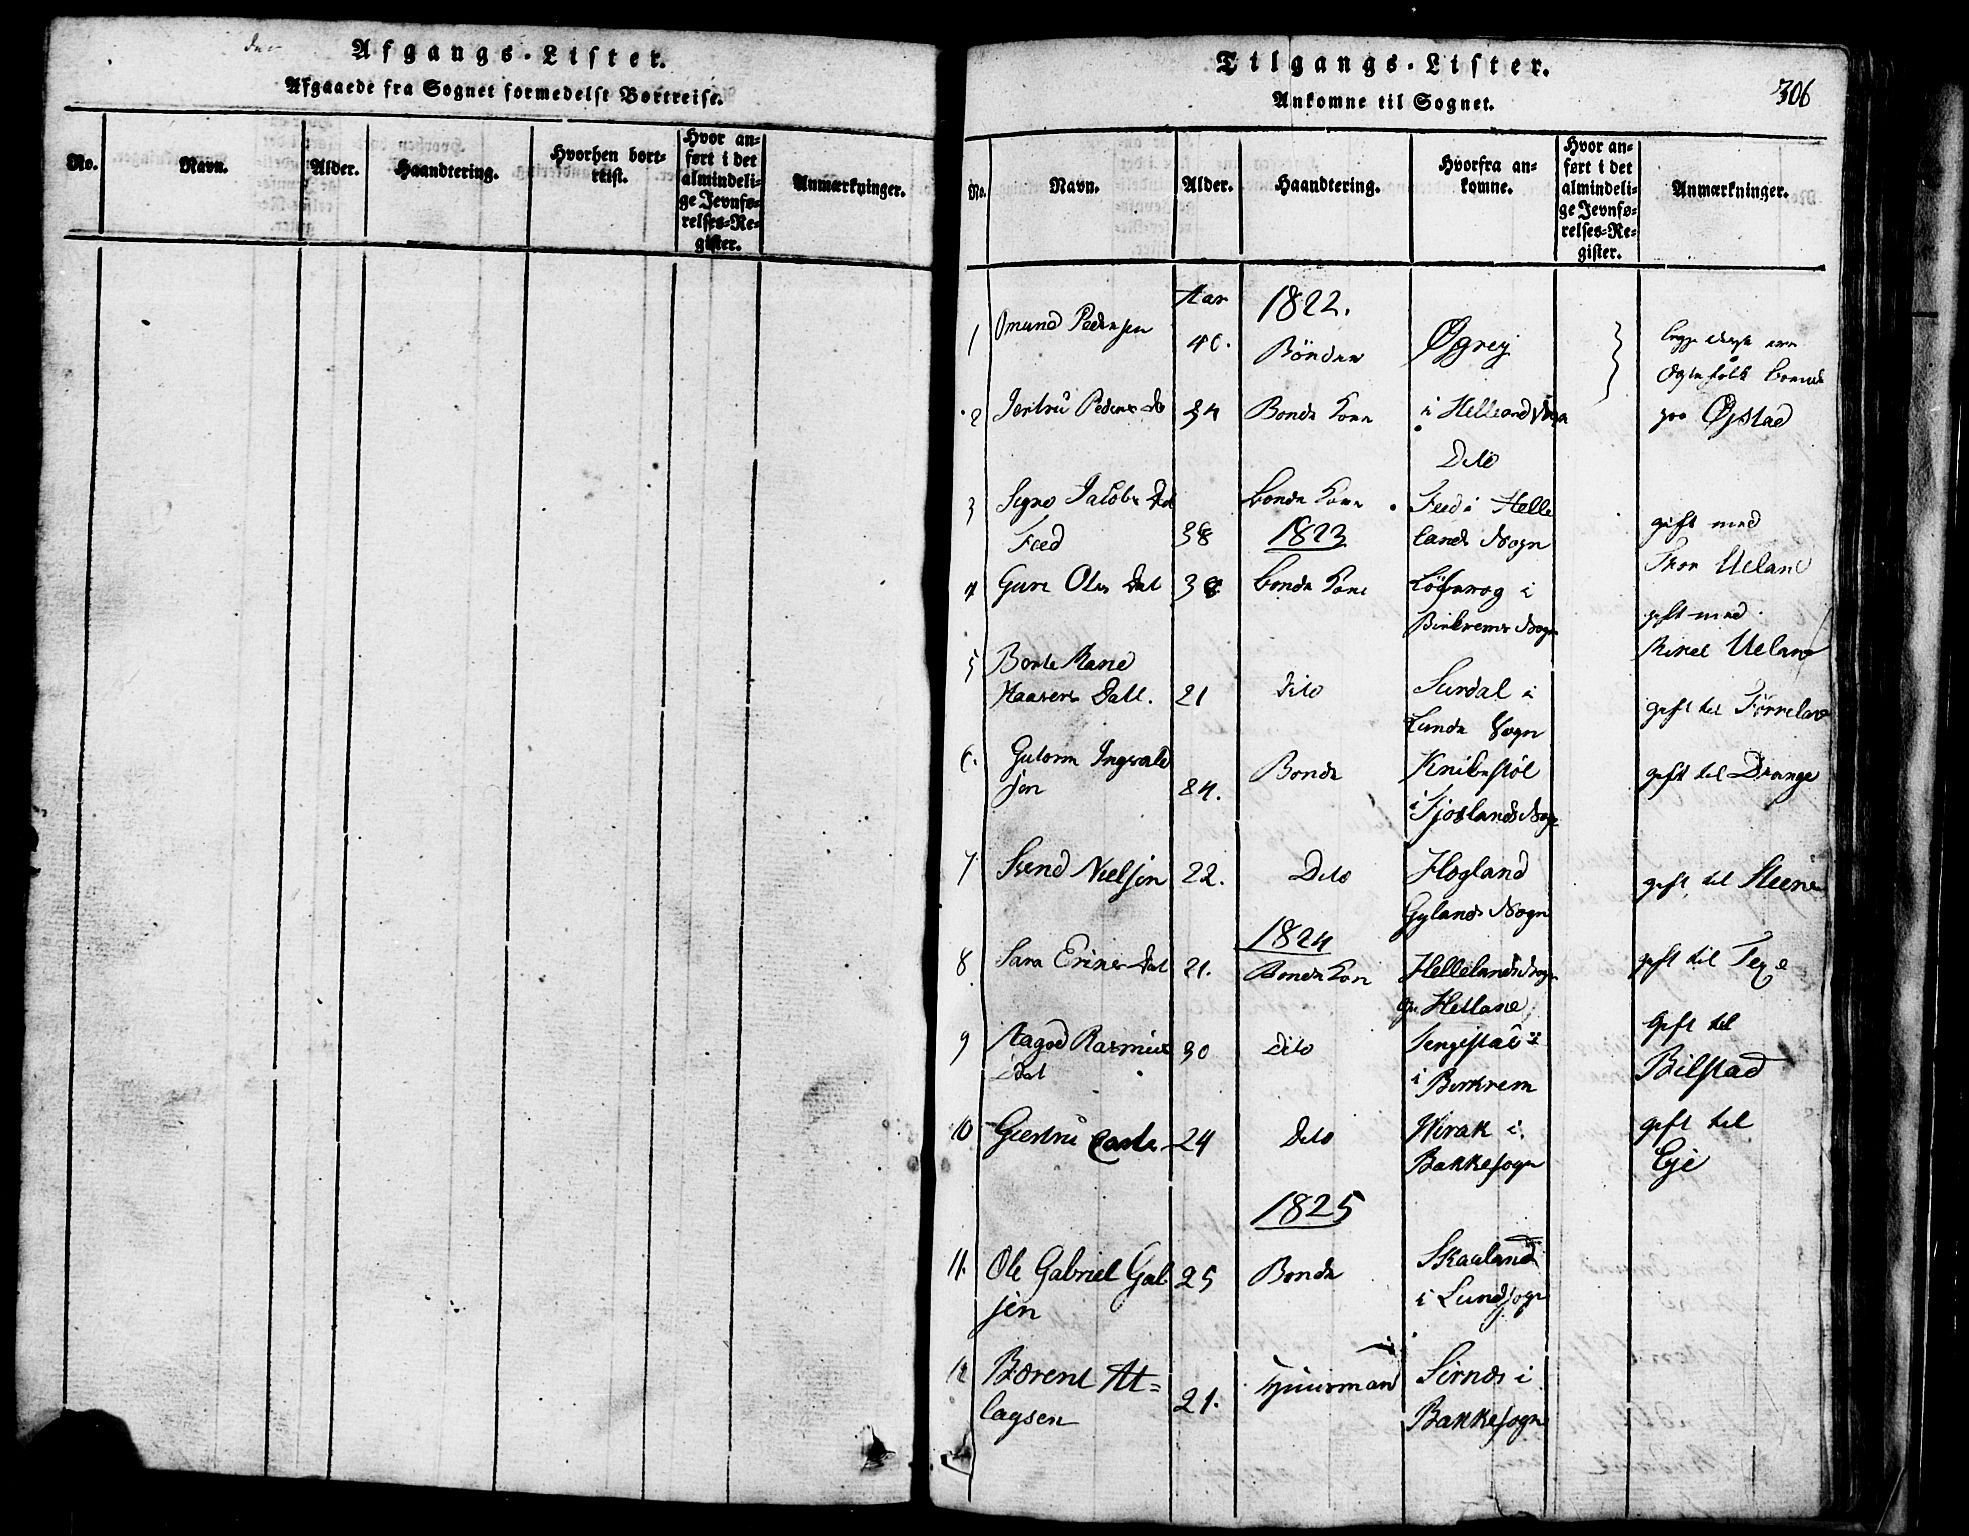 Afgangs-Lister.
Afgaaede fra Sognet formedelst Bortreise.
No.
Navn.
Alder.
Haandtering.
Hvorhen bort-
reist.
Hvor an-
ført i det
almindeli-
ge Jevnfø-
relses-Re-
gister.
Anmærkninger.
Tilgangs-Lister.
306
Ankomne til Sognet.
No.
Navn.
Alder.
Haandtering.
Hvorfra an-
komne.
Hvor an-
ført i det
almindeli-
ge Jevnfø-
relses-Re-
gister.
Anmærkninger.
Aar 1822.
1 Omund Pedersen 40. Bönder Øgrey
2 Jertru Peders D 34 Bonde Kone i Helleland Sogn
paa Øystad
Dito
3 Signe Jacobs Dat Bonde Kone Feed i Helle
Feed 38 lands Sogn gift med
1823 Thor Ueland
4 Guri Ols Dat 38 bonde Kone i
Birkrems Sogn gift med
Ueland
5 Berte Marie
Haavers Datt. 21 Dito Surdal i
Lunde Sogn gift til
6. Gutorm Ingvald
sen 84. Bonde Knibestöl
i Fjotlands Sogn gift til Drange
7 Svend Nielsen 22. Dito Flogland
Gylands Sogn gift til Steene
1824
8 Sara Erics Dat 21. Bonde Kon Hellelands Sogn
Hetland gift til
9 Aagod Rasmus
Dat 30 Dito
i Birkrem Gift til
Bilstad
10 Giertru 24 Dito Wirak i
Bakkesogn gift til
Eje
1825
11. Ole Gabriel Gab
sen 25 Bonde Skaaland
i Lundsogn
12 Bærent At=
lagsen 21. Huusmand Sirnes i
Bakkesogn